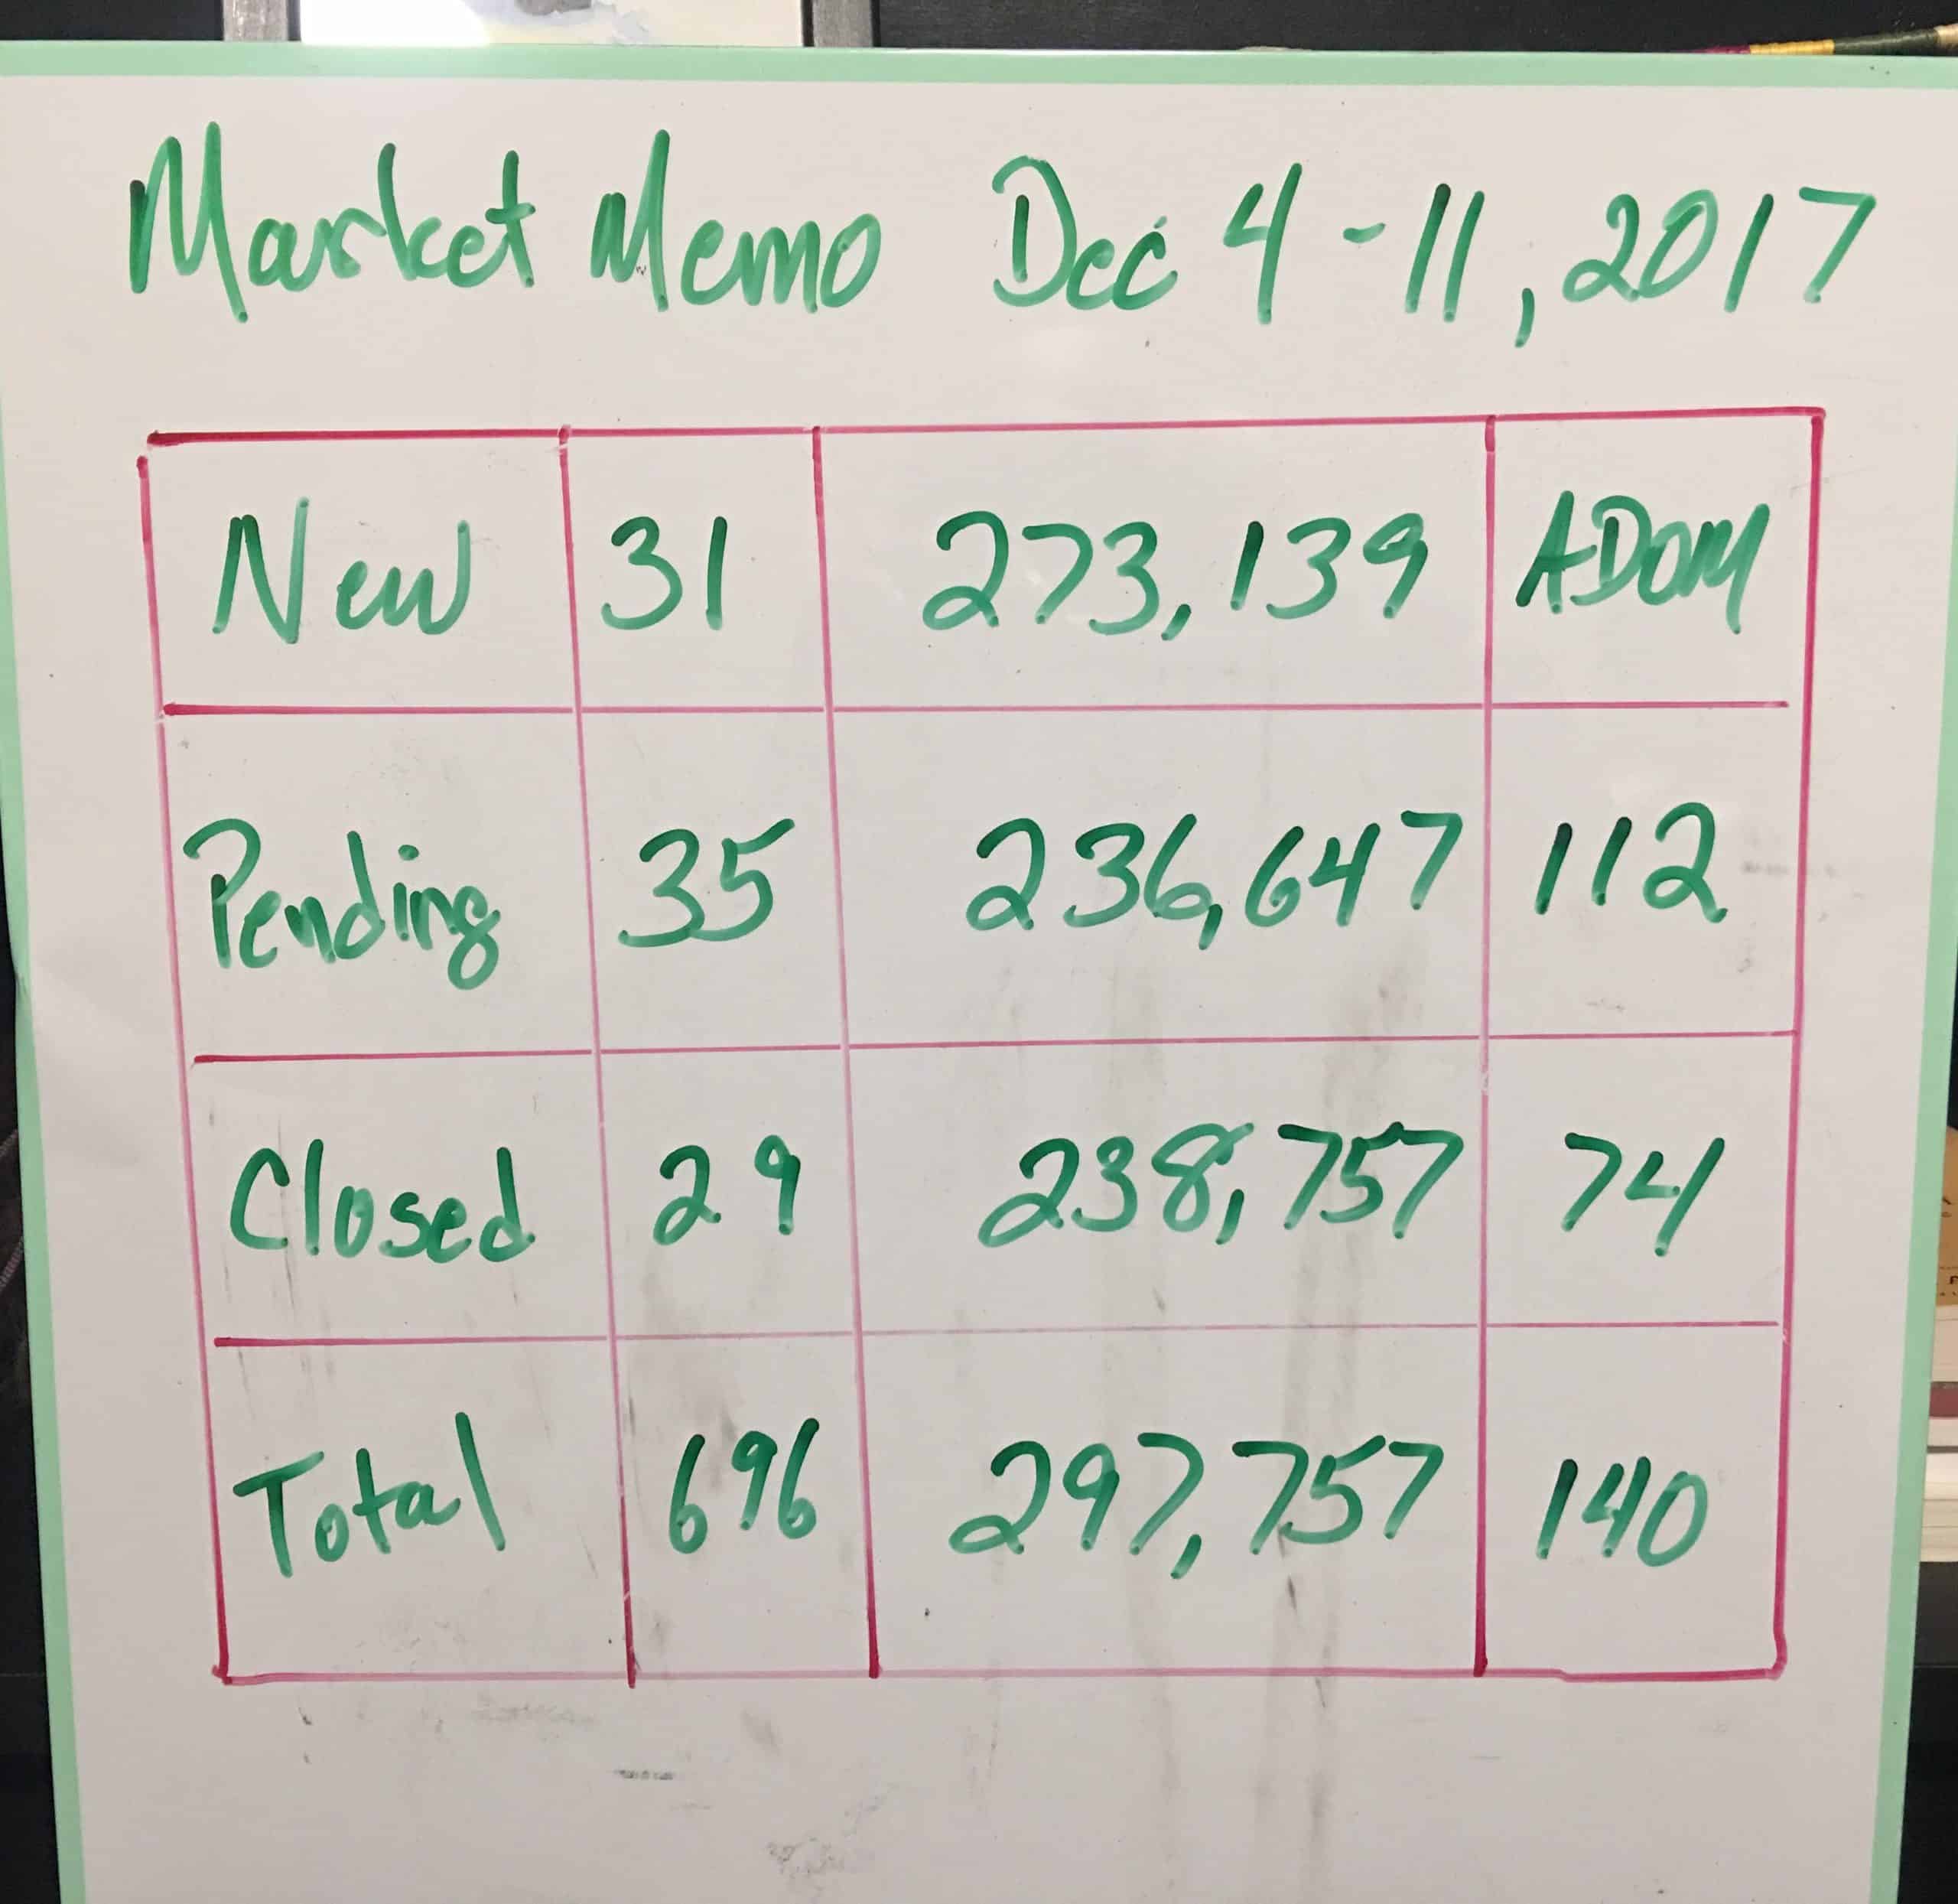 Market Memo Dec 4-11, 2017
New 31 273,139 ADOM
Pending 35 236,647 112
Closed 29 238,757 74
Total 696 297,757 140